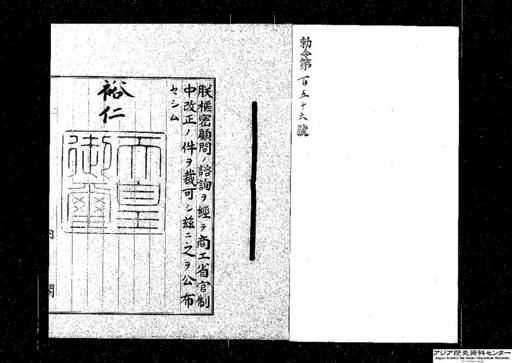 勅令第百五十六號
朕樞密顧問ノ諮詢ヲ經テ商工省官制
中改正ノ件ヲ裁可シ茲ニ之ヲ公布
セシム
裕仁
天皇
御璽
内
閣
アジア歴史資料センター
Japan Center for Asian Historical Records